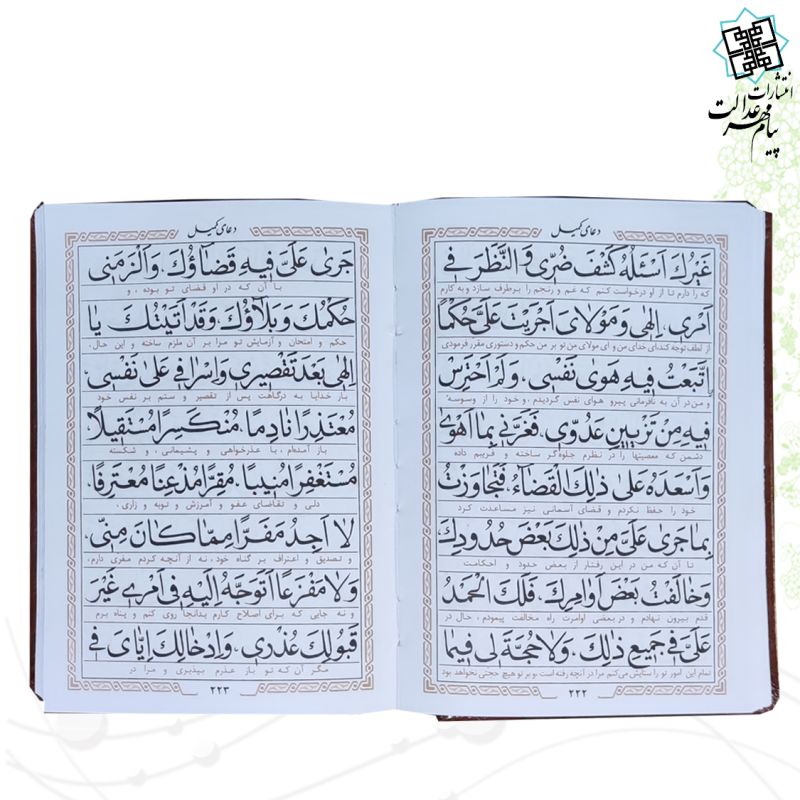 انتشارات
پیام مهر عدالت
دعای کمیل
غَيْرُكَ اَسْئَلُهُ كَشْفَ ضُرّى وَالنَّظَرَ فى
که را دارم تا از او درخواست کنم که غم و رنجم را برطرف سازد و به کارم
اَمْرى، اِلهى وَ مَوْلاىَ اَجْرَيْتَ عَلَىَّ حُكْمًا
از لطف توجه کند ای خدای من و ای مولای من تو بر من حکم و دستوری مقرر فرمودی
اِتَّبَعْتُ فيهِ هَوىٰ نَفْسى، وَلَمْ اَحْتَرِسْ
و من در آن به نافرمانی پیرو هوای نفس گردیدم، و خود را از وسوسه
فيهِ مِنْ تَزْيينِ عَدُوّى، فَغَرَّنى بِما اَهْوىٰ
دشمن که معصیتها را در نظرم جلوه‌گر ساخته و فریبم داده
وَاَسْعَدَهُ عَلىٰ ذٰلِكَ الْقَضآءُ، فَتَجاوَزْتُ
خود را حفظ نکردم و قضای آسمانی نیز مساعدت کرد
بِما جَرىٰ عَلَىَّ مِنْ ذٰلِكَ بَعْضَ حُدُودِكَ
تا آن که من در این رفتار از بعض حدود و احکامت
وَخالَفْتُ بَعْضَ اَوامِرِكَ، فَلَكَ الْحَمْدُ
قدم بیرون نهادم و در بعضی اوامرت راه مخالفت پیمودم، حال در
عَلَىَّ فى جَميعِ ذٰلِكَ، وَلا حُجَّةَ لى فيما
تمام این امور تو را ستایش می‌کنم مرا در آنچه رفته است، و بر تو هیچ حجتی نخواهد بود
۲۲۲
دعای کمیل
جَرىٰ عَلَىَّ فيهِ قَضاؤُكَ، وَاَلْزَمَنى
با آن که در او قضای تو بوده، و
حُكْمُكَ وَبَلاؤُكَ، وَقَدْ اَتَيْتُكَ يا
حکم و امتحان و آزمایش تو مرا بر آن ملزم ساخته و این حال،
اِلهى بَعْدَ تَقْصيرى وَاِسْرافى عَلىٰ نَفْسى،
بار خدایا به درگاهت پس از تقصیر و ستم بر نفس خود
مُعْتَذِرًا نادِمًا، مُنْكَسِرًا مُسْتَقيلًا،
باز آمده‌ام، با عذرخواهی و پشیمانی، و شکسته
مُسْتَغْفِرًا مُنيبًا، مُقِرًّا مُذْعِنًا مُعْتَرِفًا،
دلی و تقاضای عفو و آمرزش و توبه و زاری،
لا اَجِدُ مَفَرًّا مِمّا كانَ مِنّى،
و تصدیق و اعتراف بر گناه خود، نه از آنچه کردم مفری دارم،
وَلا مَفْزَعًا اَتَوَجَّهُ اِلَيْهِ فى اَمْرى غَيْرَ
و نه جایی که برای اصلاح کارم بدانجا روی کنم و پناه برم
قَبُولِكَ عُذْرى، وَاِدْخالِكَ اِيّاىَ فى
مگر آن که تو باز عذرم بپذیری و مرا در
۲۲۳